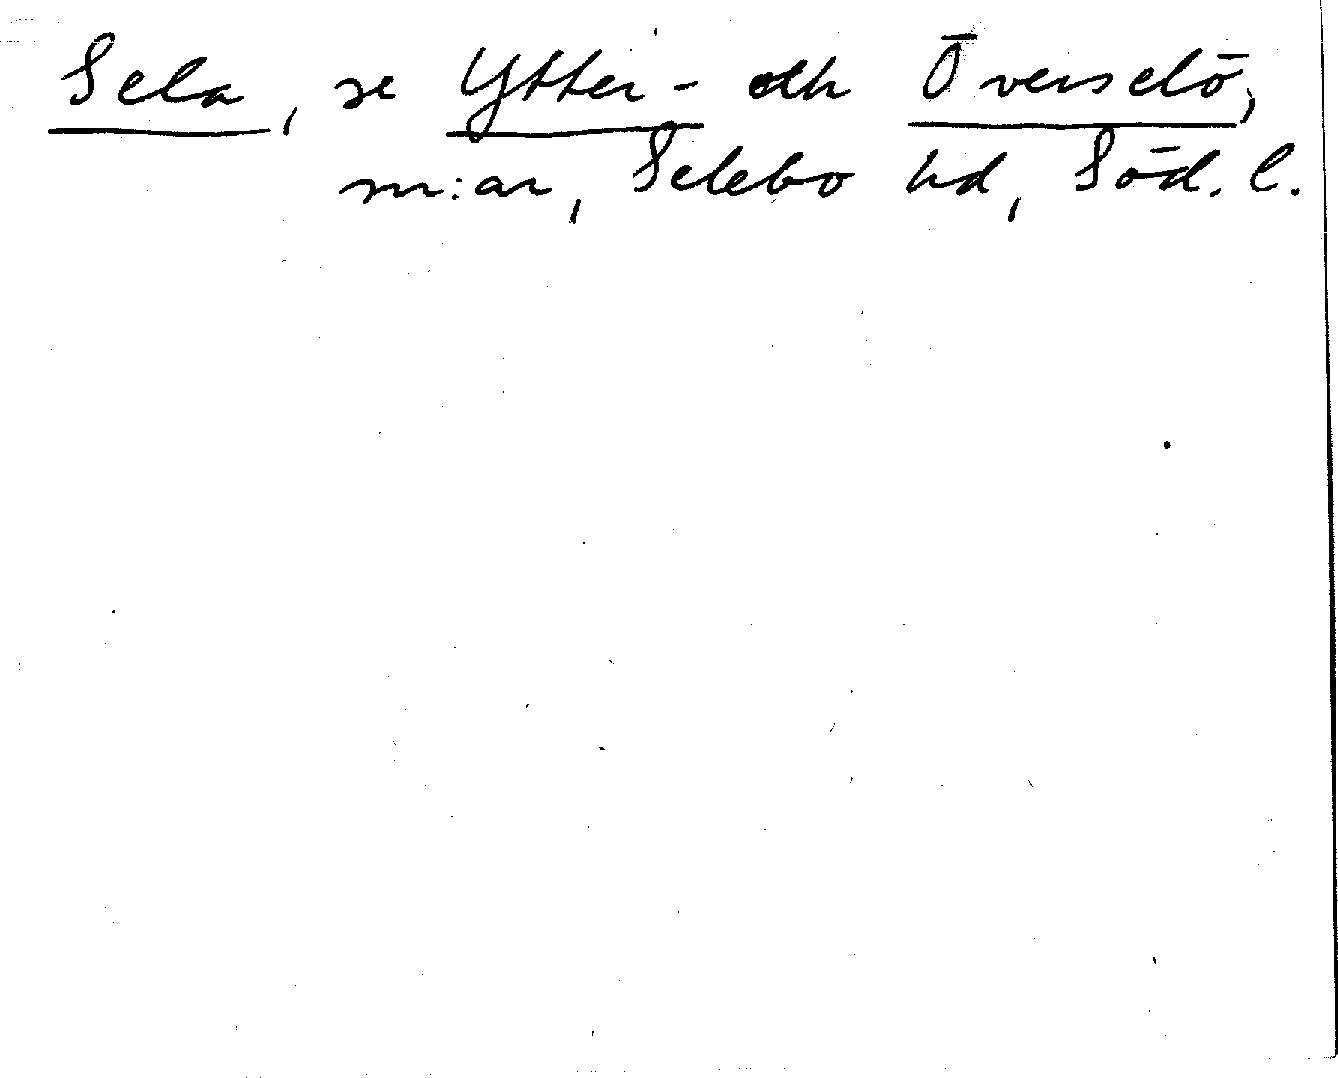 Sela, se Ytter- och Överselö,
sn:ar, Selebo hd, Söd. l.